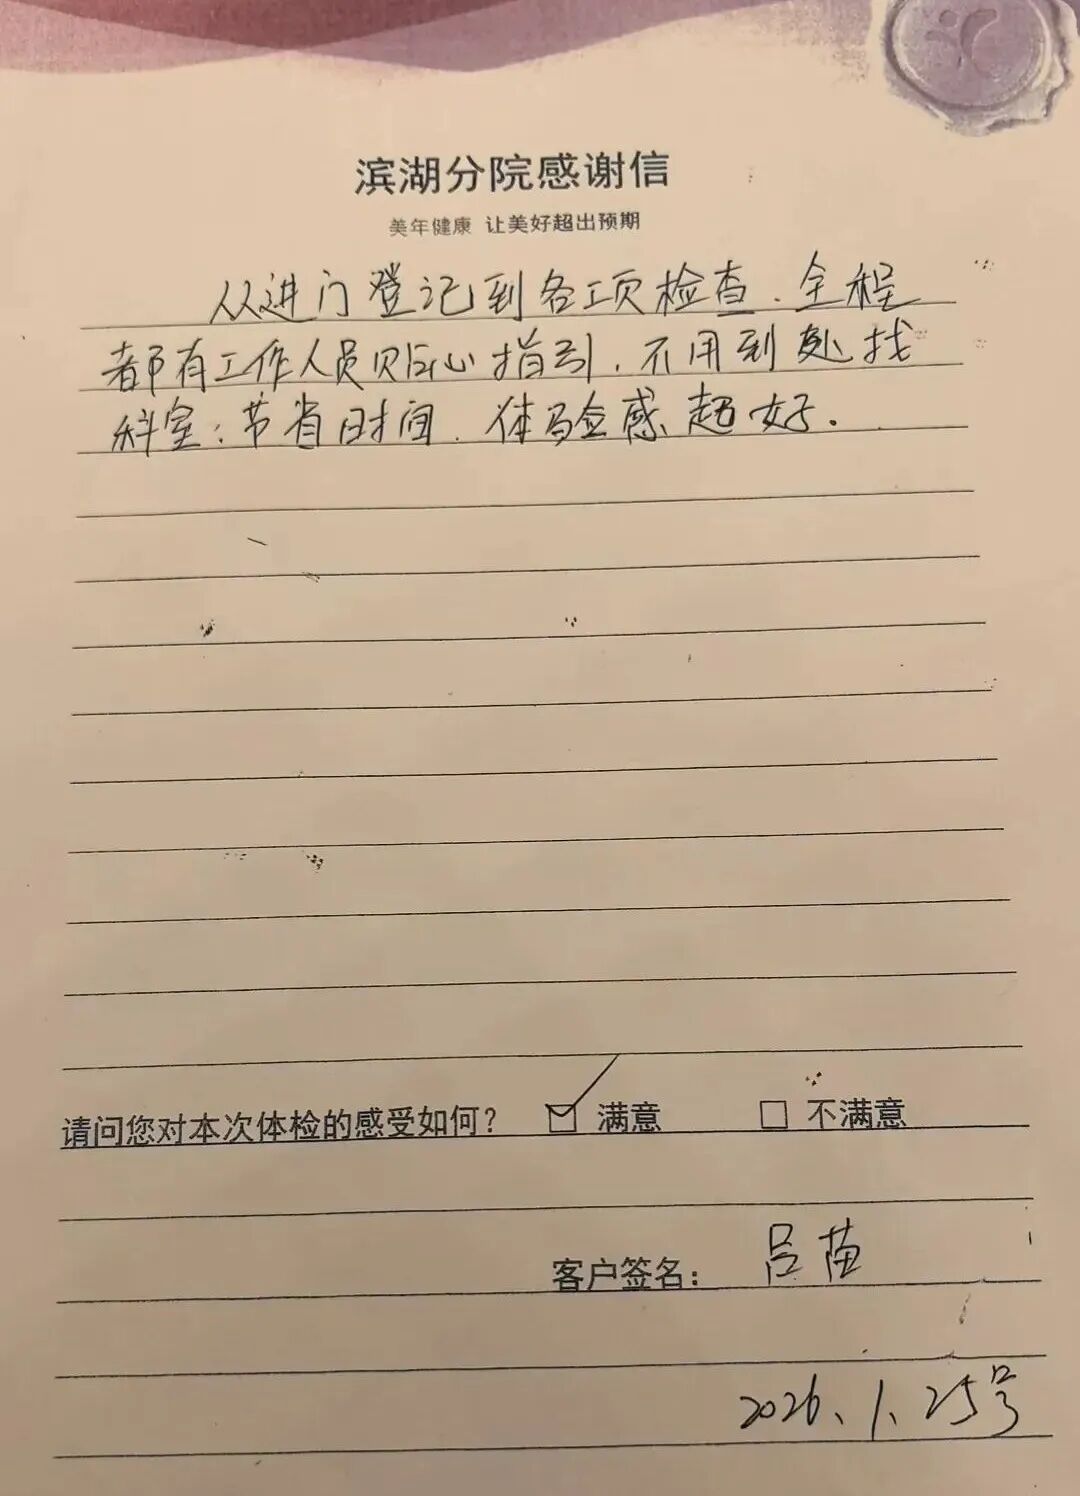 滨湖分院感谢信
美年健康 让美好超出预期
从进门登记到各项检查、全程
都有工作人员贴心指引,不用到处找
科室;节省时间、体验感超好。
请问您对本次体检的感受如何? ☑ 满意 □ 不满意
客户签名: 吕苗
2026、1、25号